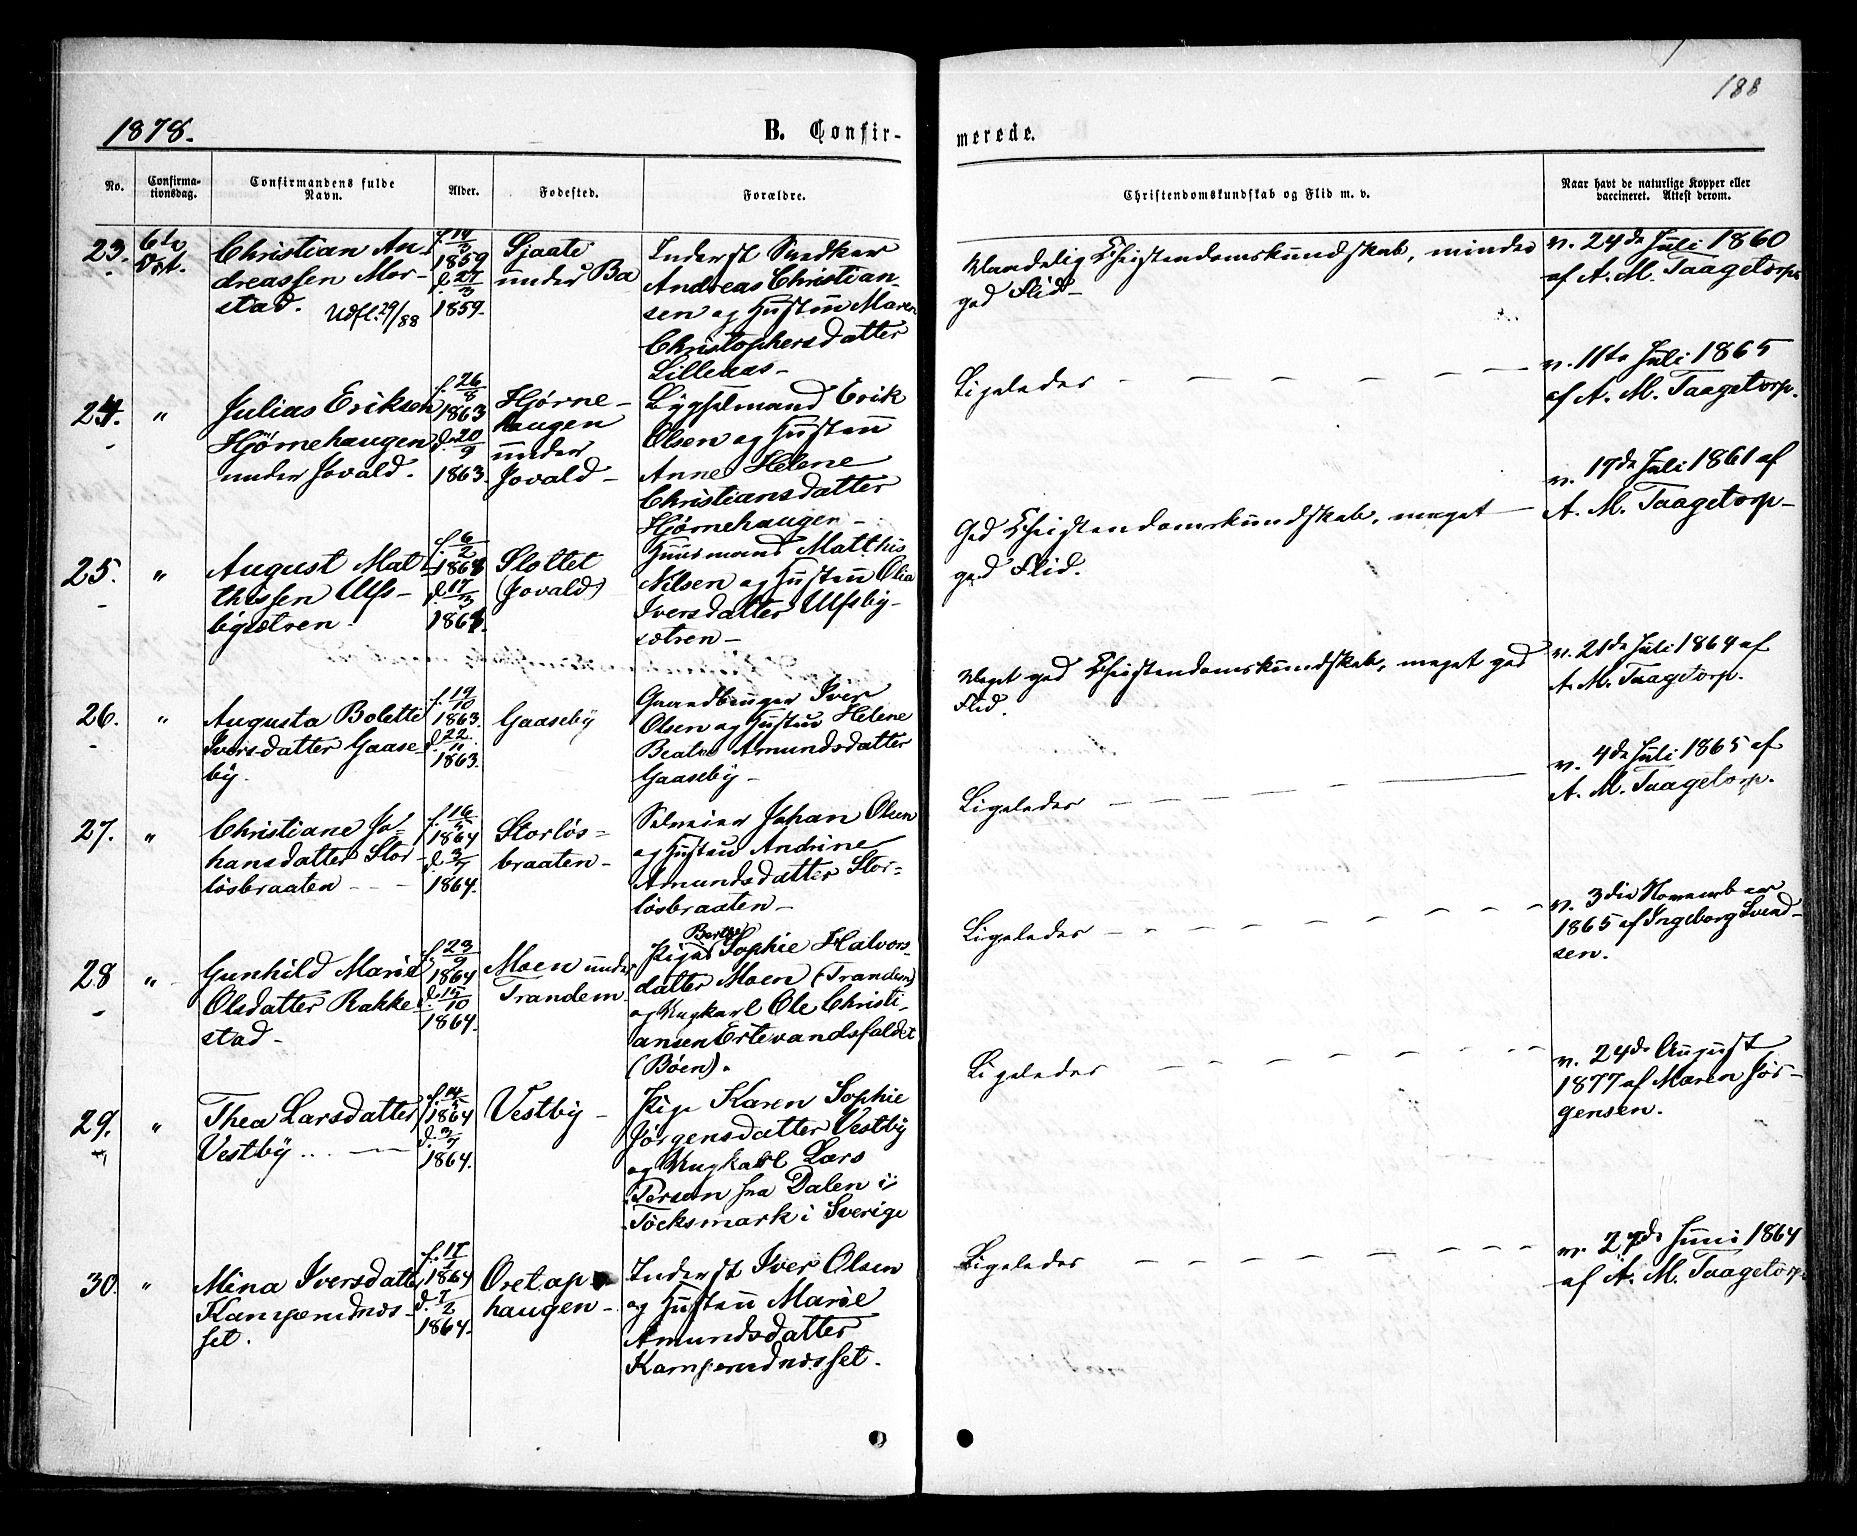 188
1878.
B. Confir-
merede.
No.
Confirma-
tionsdag.
Confirmandens fulde
Navn.
Alder.
Fodested.
Forældre.
Christendomskundskab og Flid m. v.
Naar havt de naturlige Kopper eller
vaccineret. Attest derom.
23.
6te
Oct.
Christian An-
dreassen Mor-
stad.
Udfl. 29/88
f. 14/3
1859
d. 27/3
1859.
under Ba
Inderst Snedker
Andreas Christian-
sen og Hustru Maren
Christophersdatter
Lilleaas-
Maadelig Christendomskundskab, mindre
god Flid-
v. 24de Juli 1860
af A. M. Taagetorp.
24.
"
Julias Eriksen
Hjørnehaugen
under Jovald.
f. 26/8
1863
d. 20/9
1863.
Hjørne-
haugen
under
Jovald-
Bygselmand Erik
Olsen og Hustru
Anne Helene
Christiansdatter
Hjørnehaugen-
Ligeledes
v. 11te Juli 1865
af A. M. Taagetorp.
25.
"
August Mat-
thissen Ulfs-
bysætren.
f. 6/2
d. 17/3
Slottet
(Jovald)
Huusmand Matthis
Nilsen og Hustru Olia
Iversdatter Ulfsby-
sætren-
God Christendomskundskab, meget
god Flid.
v. 17de Juli 1861 af
A. M. Taagetorp-
26.
"
Augusta Bolette
Iversdatter Gaase-
by.
f. 19/10
1863.
d. 22/11
1863.
Gaaseby
Gaardbruger Iver
Olsen og Hustru Helene
Beate Amundsdatter
Gaaseby-
Meget god Christendomskundskab, meget god
Flid.
v. 21de Juli 1864 af
A. M. Taagetorp.
27.
"
Christiane Jo-
hansdatter Stor-
løsbraaten
f. 16/5
1864
d. 3/7
1864.
Storløs-
braaten-
Selveier Johan Olsen
og Hustru Andrine
Amundsdatter Stor-
løsbraaten-
Ligeledes
v. 4de Juli 1865 af
A. M. Taagetorp.
28
"
Gunhild Marie
Olsdatter Rakke-
stad-
f. 23/9
1864
d. 15/10
1864.
Moen under
Trandem
Pige Berthe Sophie Halvors-
datter Moen (Trandem)
og Ungkarl Ole Christi-
ansen Ertevandsfaldet
(Bøen).
Ligeledes
v. 3die November
1865 af Ingeborg Svend-
sen.
29.
"
Thea Larsdatter
Vestby
f. 14/5
1864
d. 3/7
1864.
Vestby-
Pige Karen Sophie
Jørgensdatter Vestby
og Ungkarl Lars
Person fra Dalen i
Töcksmark i Sverige
Ligeledes
v. 24de August
1877 af Maren Jør-
gensen.
30.
"
Mina Iversdatter
f. 17/1
1864
d. 7/2
1864.
Oretop-
haugen-
Inderst Iver Olsen
og Hustru Marie
Amundsdatter
Ligeledes
v. 27de Juni 1864
af A. M. Taagetorp